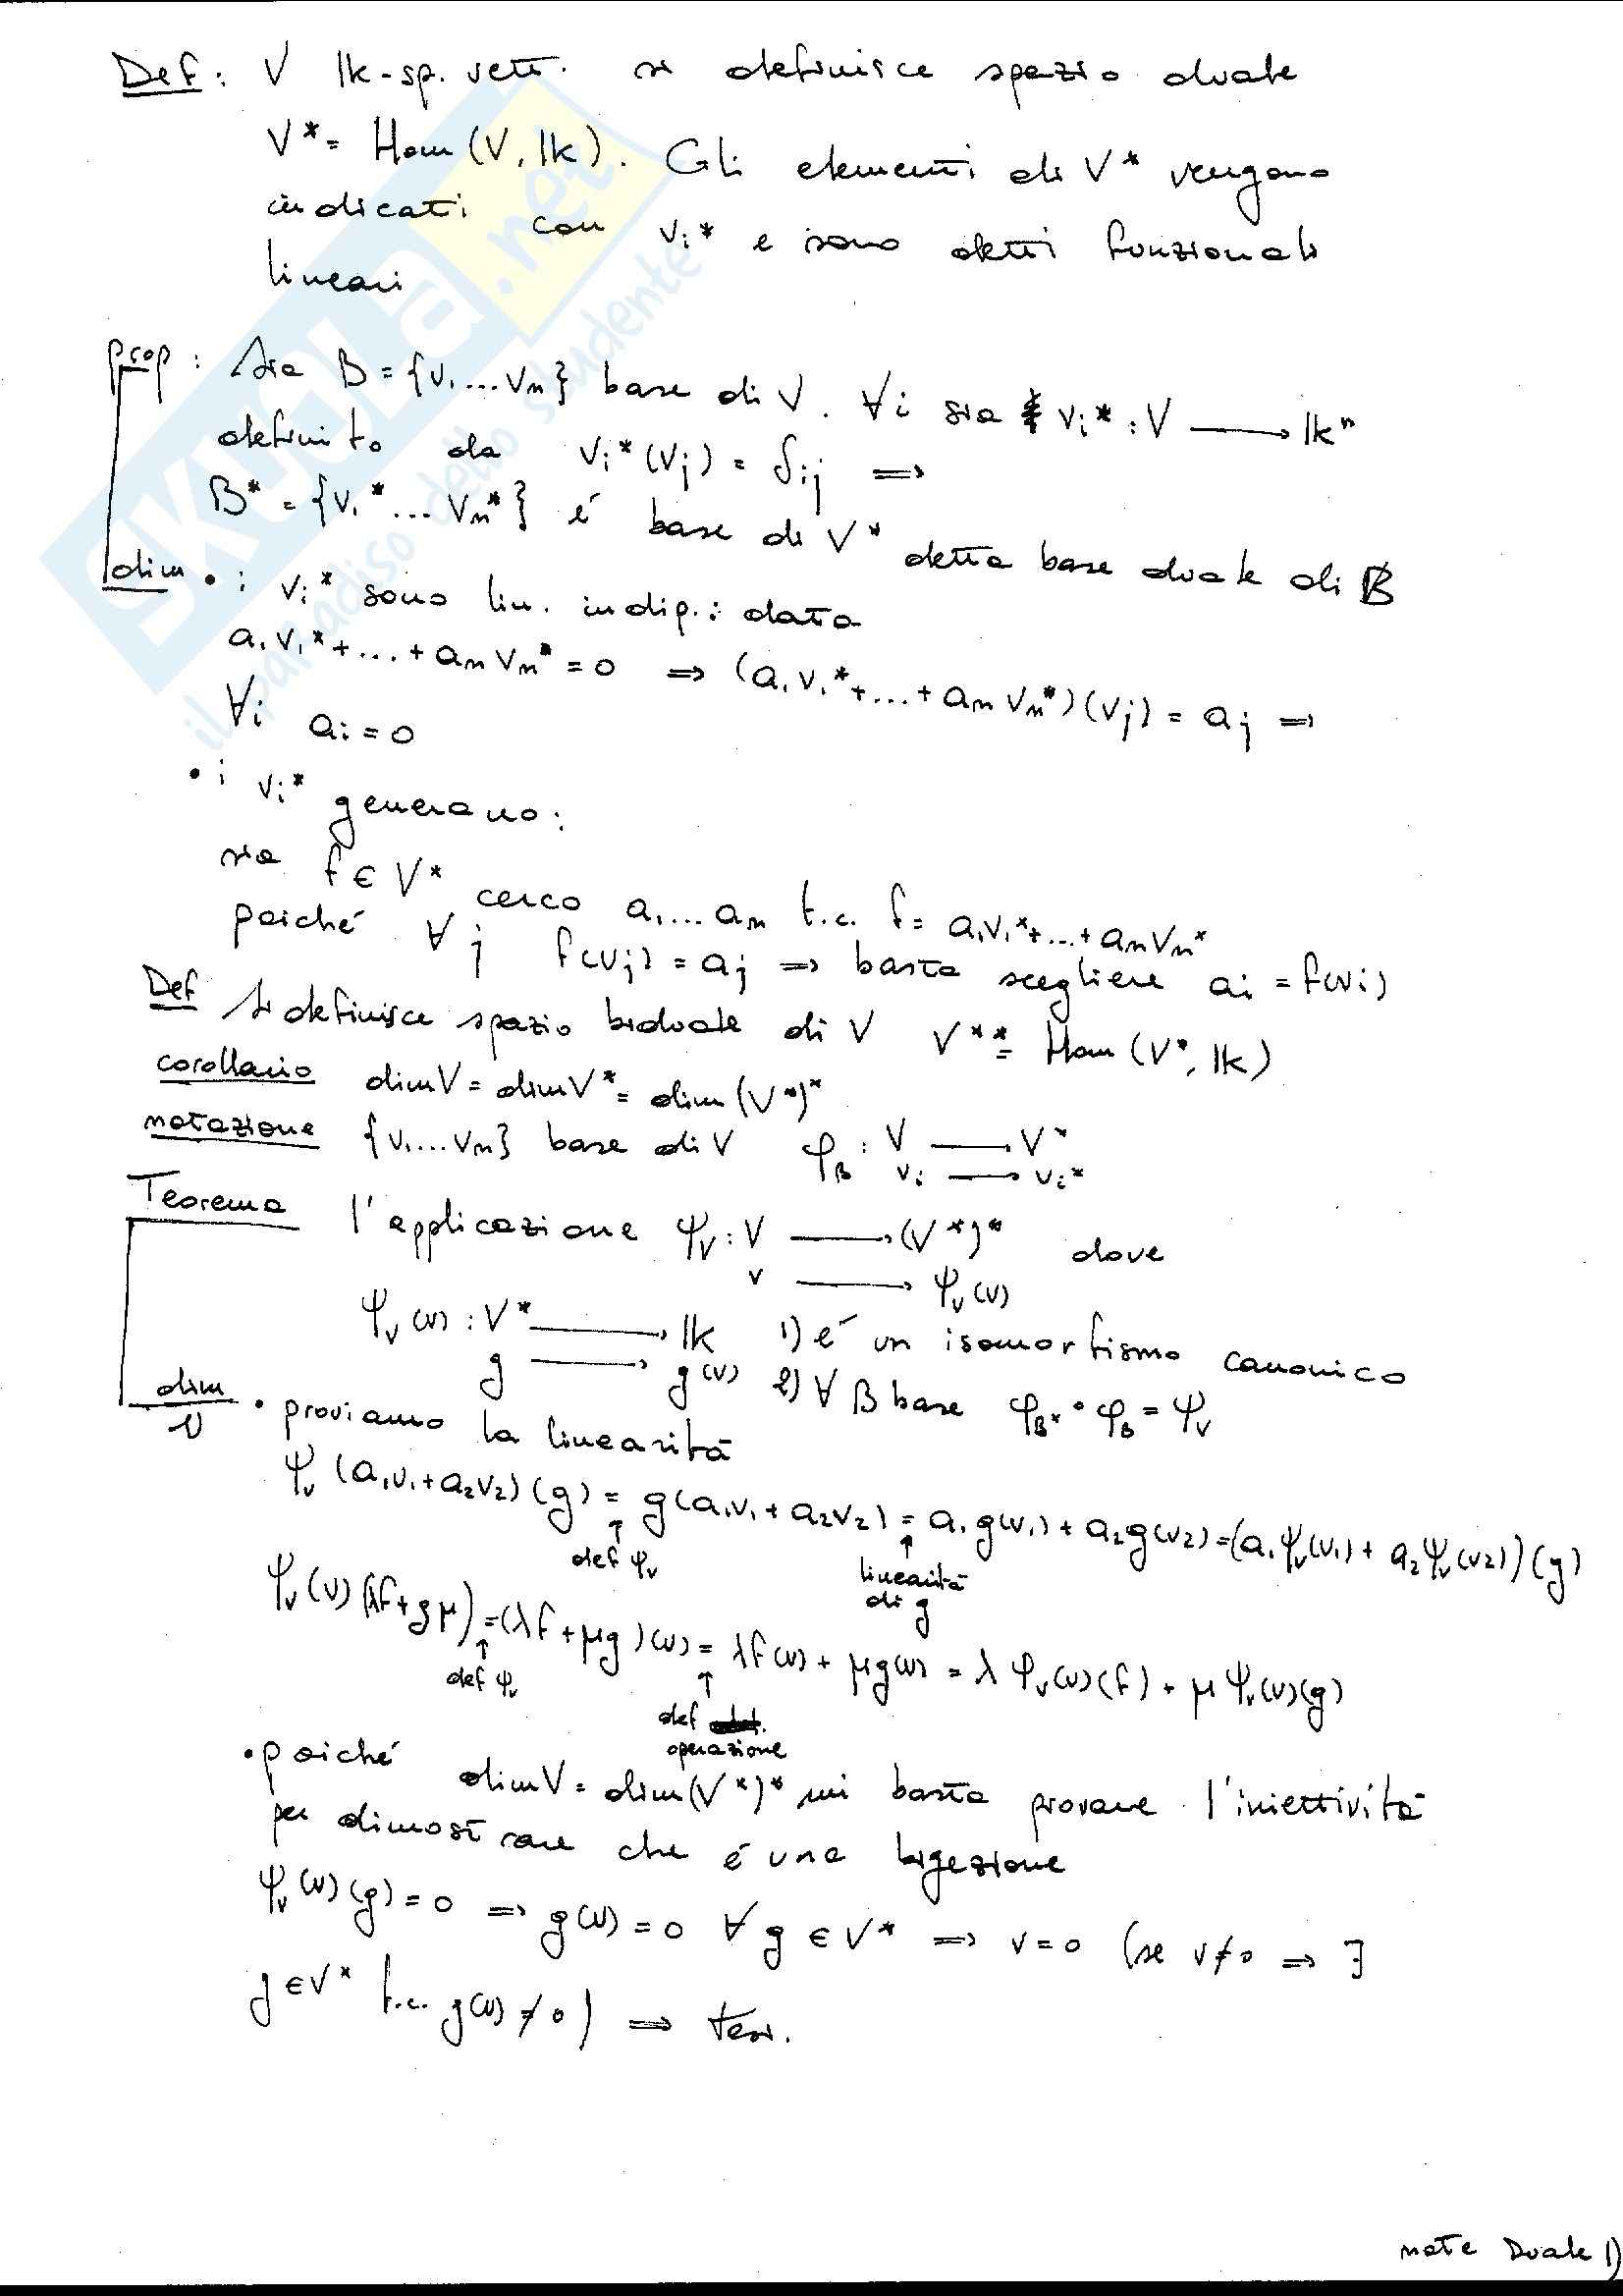 Def: V lk-sp. vett. si definisce spazio duale
V* = Hom (V, lk). Gli elementi di V* vengono
indicati con vi* e sono detti funzionali
lineari
prop: Sia B = {v1 ... vn} base di V. ∀i sia vi* : V ⟶ lkⁿ
definito da vi*(vj) = δij ⇒
B* = {v1* ... vn*} é base di V* detta base duale di B
dim • i vi* sono lin. indip.: data
a1 v1* + ... + an vn* = 0 ⇒ (a1 v1* + ... + an vn*)(vj) = aj ⇒
∀i ai = 0
• i vi* generano:
sia f ∈ V* cerco a1 ... an t.c. f = a1v1* + ... + an vn*
poiché ∀j f(vj) = aj ⇒ basta scegliere ai = f(vi)
Def Si definisce spazio biduale di V V** = Hom (V*, lk)
corollario dimV = dimV* = dim (V*)*
notazione {v1 ... vn} base di V φB : V ⟶ V*
vi ⟶ vi*
Teorema l'applicazione ψV : V ⟶ (V*)* dove
v ⟶ ψV(v)
ψV(v) : V* ⟶ lk 1) é un isomorfismo canonico
g ⟶ g(v) 2) ∀ B base φB* ∘ φB = ψV
dim • proviamo la linearitá
1)
ψV (a1v1 + a2v2)(g) = g(a1v1 + a2v2) = a1 g(v1) + a2 g(v2) = (a1 ψV(v1) + a2 ψV(v2))(g)
↑ ↑
def ψV linearitá
di g
ψV(v)(λf + gμ) = (λf + μg)(v) = λf(v) + μg(v) = λ ψV(v)(f) + μ ψV(v)(g)
↑ ↑
def ψV def
operazione
• poiché dimV = dim(V*)* mi basta provare l'iniettivitá
per dimostrare che é una bigezione
ψV(v)(g) = 0 ⇒ g(v) = 0 ∀ g ∈ V* ⇒ v = 0 (se v ≠ 0 ⇒ ∃
g ∈ V* t.c. g(v) ≠ 0) ⇒ tesi.
note Duale 1)
SKUOLA.net
il paradiso dello studente